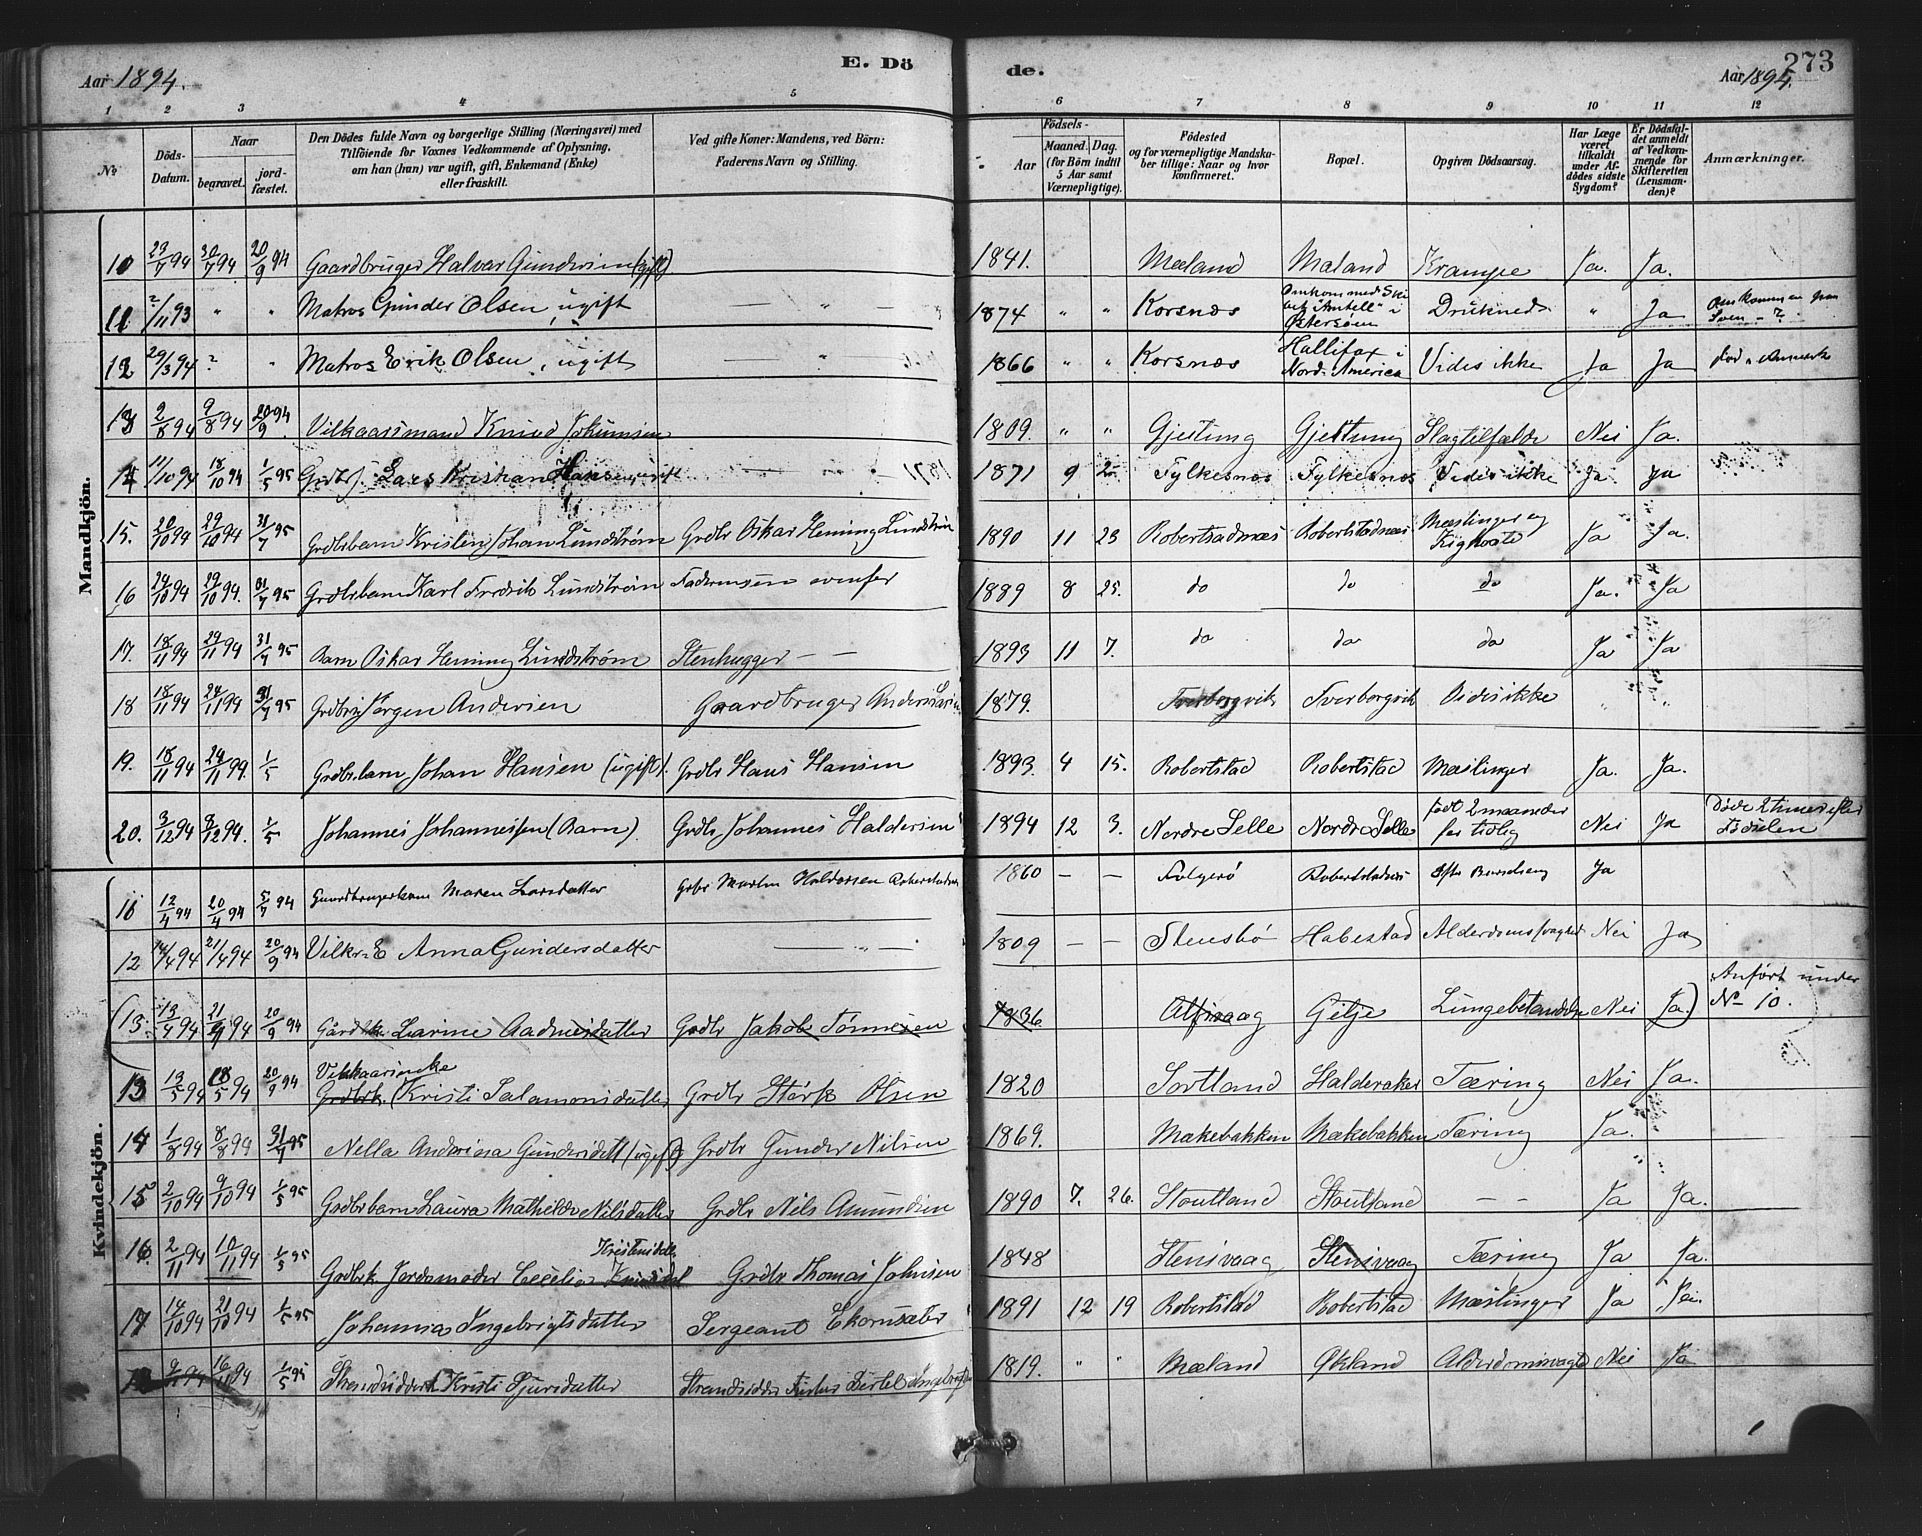 Aar 1894.
E. Dö
de.
273
Aar 1894.
1 2 3 4 5 6 7 8 9 10 11 12
No
Döds-Datum.
Naar
begravet.
jord-fæstet.
Den Dödes fulde Navn og borgerlige Stilling (Næringsvei) med
Tilföiende for Voxnes Vedkommende af Oplysning,
om han (hun) var ugift, gift, Enkemand (Enke)
eller fraskilt.
Ved gifte Koner: Mandens, ved Börn:
Faderens Navn og Stilling.
Födsels-
Aar
Maaned. Dag.
(for Börn indtil
5 Aar samt
Værnepligtige).
Födested
og for værnepligtige Mandska-
ber tillige: Naar og hvor
konfirmeret.
Bopæl.
Opgiven Dödsaarsag.
Har Læge
været
tilkaldt
under Af-
dödes sidste
Sygdom?
Er Dödsfal-
det anmeldt
af Vedkom-
mende for
Skifteretten
(Lensman-
den)?
Anmærkninger.
Mandkjön.
10 29/7 94 30/7 94 20/9 94 Gaardbruger Halvar Gundersen (gift) 1841. Mæland Mæland Krampe Ja. Ja.
11 2/11 93 " " Matros Gunder Olsen, ugift — " 1874 " " Korsnæs Omkom med Ski bet "Antell" i Østersøen Druknede " Ja
12 29/3 94 ? " Matros Erik Olsen, ugift — " 1866 " " Korsnæs Hallifax i Nord-America Vides ikke Ja Ja
13 2/8 94 9/8 94 20/9 94 Vilkaarsmand Knud Johannsen 1809. " " Gjestung Gjestung Slagtilfælde Nei Ja.
14 11/10 94 18/10 94 1/5 95 Grdbr Lars Kristian Hansen, ugift 1871 9 25 Fylkesnæs Fylkesnæs Vides ikke Ja Ja
15. 20/10 94 29/10 94 31/7 95 Grdbrbarn Kristen Johan Lundstrøm Grdbr Oskar Heming Lundstrøm 1890 11 23 Robertsadnæs Robertstadnæs Mæslinger og Kighoste Ja Ja.
16 24/10 94 29/10 94. 31/7 95 Grdbrbarn Karl Fredrik Lundstrøm Faderen som ovenfor 1889 8 25. do do do Ja. Ja
17. 18/11 94 29/11 94 31/7 95 Barn Oskar Heming Lundstrøm Stenhugger — — 1893 11 7. do do do Ja Ja
18 18/11 94 24/11 94 31/7 95 Grdbr Jørgen Andersen Gaardbruger Anders Larsen 1879. Tverborgvik Tverborgvik Vides ikke " "
19. 18/11 94 24/11 99. 1/5 Grdbr.barn Johan Hansen (ugift). Grdbr Hans Hansen 1893. 4 15. Robertstad Robertstad Mæslinger Ja. Ja.
20. 3/12 94 8/12 94. 1/5 Johannes Johannessen (Barn). Grdbr Johannes Haldersen 1894 12 3. Nordre Selle Nordre Selle født 2 maaneder for tidlig Nei Ja Døde 2 timer efter Fødselen
Kvindekjön.
11 12/4 94 20/4 94 5/7 94 Gaardbrugerkone Maren Larsdatter Grbr Martin Haldorsen Robertstadnæs 1860 — — Folgerø Robertstadnæs Efter Barselseng Ja
12 14/4 94 21/4 94 20/9 94 Vilkr. E Anna Gundersdatter — " — 1809 — — Stensbø Habestad Alderdomssvaghed Nei Ja
(13. 13/4 94 21/4 94 20/9 94 Gårdbk. Larine Aadnesdatter Grdbr Jakob Tønnesen 1836 Alfsvaag Gilje Lungebetændelse Nei Ja.) Anført under No 10.
13 13/5 94 18/5 94 20/9 94 Vilkaarsenke Grdbrk. (Kristi Salamonsdatter Grdbr Størk Olsen 1820 Sortland Haldoraker Tæring Nei Ja.
14 1/8 94 8/8 99 31/7 95 Nella Anderina Gundersdatt (ugift) Grdbr Gunder Nilsen 1869. Mækebakken Mækebakken Tæring Ja.
15 2/10 94 9/10 94 1/5 95 Grdbrbarn Laura Mathilde Nilsdatter Grdbr Nils Amundsen 1890 7. 26. Stoutland Stoutland — — Ja Ja.
16. 2/11 94 10/11 94 1/5 95 Grdbrk Jordemoder Cecelia Kristensdatter Grdbr Thomas Johnsen 1848 Stensvaag Stensvaag Tæring Ja Ja.
17 14/10 94 21/10 94 1/5 95 Johanna Ingebrigtsdatter Sergeant Ekornsæter 1891 12 19 Robertstad Robertstad Mæslinger Ja Nei.
9/11 94 16/11 94 1/5 95 Strandsidderk Kristi Sjursdatter Strandsidder 1819. " " Mæland Økland Alderdomssvaghed Nei Ja